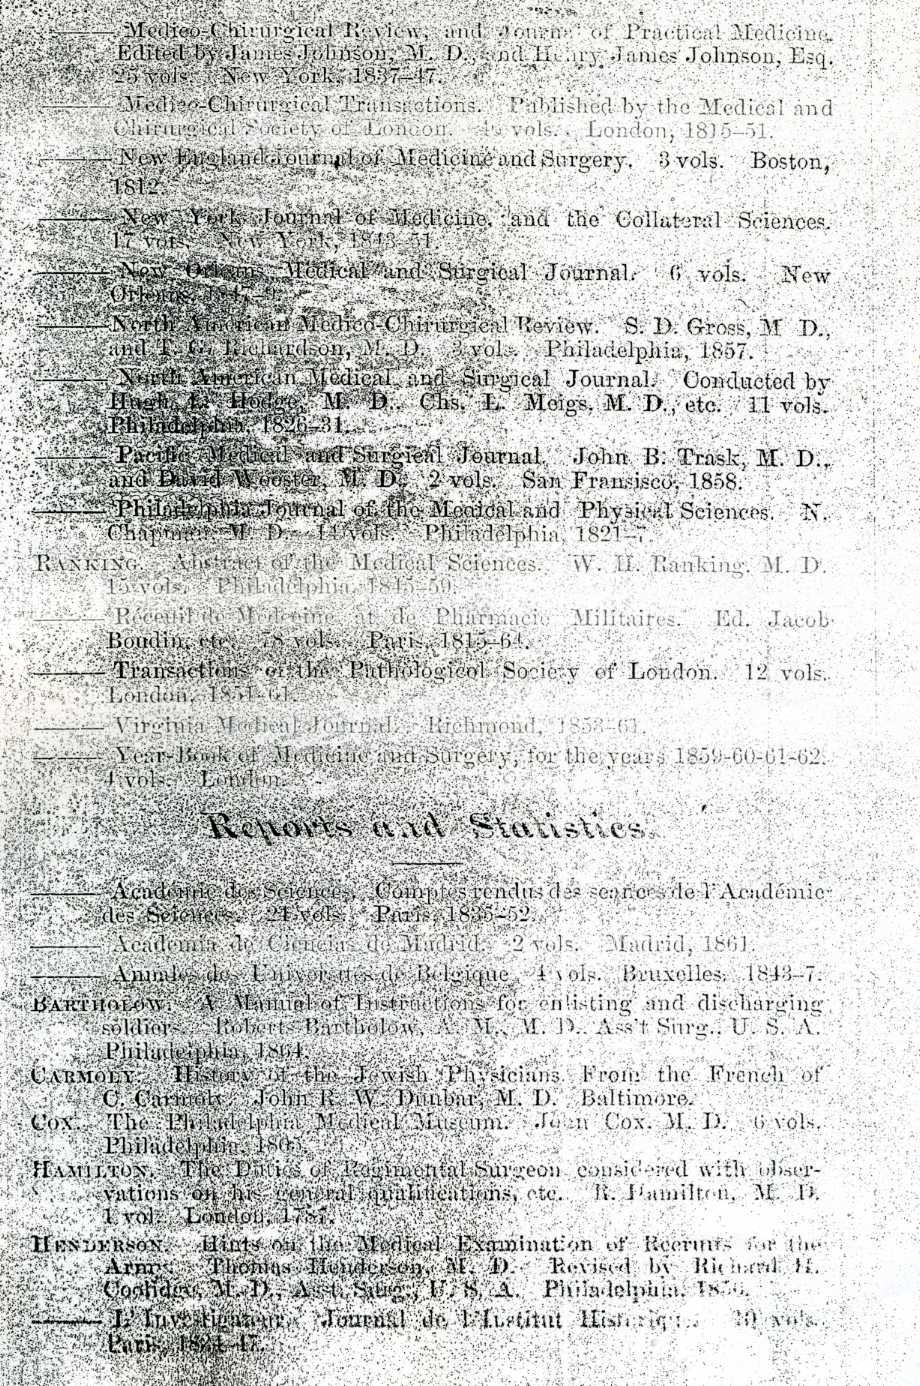 ——— Medico-Chirurgical Review, and Journal of Practical Medicine.
Edited by James Johnson, M. D., and Henry James Johnson, Esq.
25 vols. New York, 1837–47.
——— Medico-Chirurgical Transactions. Published by the Medical and
Chirurgical Society of London. vols. London, 1815–51.
——— New England Journal of Medicine and Surgery. 3 vols. Boston,
1812
——— New York Journal of Medicine, and the Collateral Sciences.
17 vols. New York, 1843–51.
——— New Orleans Medical and Surgical Journal. 6 vols. New
Orleans,
——— North American Medico-Chirurgical Review. S. D. Gross, M D.,
and T. G. Richardson, M. D. 3 vols. Philadelphia, 1857.
——— North American Medical and Surgical Journal. Conducted by
Hugh L. Hodge, M. D., Chs. L. Meigs, M. D., etc. 11 vols.
Philadelphia, 1826–31.
——— Pacific Medical and Surgical Journal. John B. Trask, M. D.,
and David Wooster, M. D. 2 vols. San Fransisco, 1858.
——— Philadelphia Journal of the Medical and Physical Sciences. N.
Chapman, M. D. 14 vols. Philadelphia, 1821–7.
RANKING. Abstract of the Medical Sciences. W. H. Ranking, M. D.
15 vols. Philadelphia, 1845–59.
——— Receuil de Medecine et de Pharmacie Militaires. Ed. Jacob
Boudin, etc. 78 vols. Paris, 1815–64.
——— Transactions of the Pathological Society of London. 12 vols.
London, 1851–61.
——— Virginia Medical Journal. Richmond, 1853–61.
——— Year-Book of Medicine and Surgery, for the years 1859-60-61-62.
4 vols. London.
Reports and Statistics.
——— Academie des Sciences. Comptes rendus des seances de l'Académie
des Sciences. 24 vols. Paris, 1835–52.
——— Academia de Ciencias de Madrid. 2 vols. Madrid, 1861.
——— Annales des Universités de Belgique. 4 vols. Bruxelles, 1843–7.
BARTHOLOW. A Manual of Instructions for enlisting and discharging
soldiers. Roberts Bartholow, A. M., M. D., Ass't Surg., U. S. A.
Philadelphia, 1864.
CARMOLY. History of the Jewish Physicians. From the French of
C. Carmoly. John R. W. Dunbar, M. D. Baltimore.
COX. The Philadelphia Medical Museum. John Cox. M. D. 6 vols.
Philadelphia, 1805.
HAMILTON. The Duties of Regimental Surgeon considered with obser-
vations on his general qualifications, etc. R. Hamilton, M. D.
1 vol. London, 1787.
HENDERSON. Hints on the Medical Examination of Recruits for the
Army. Thomas Henderson, M. D. Revised by Richard H.
Coolidge, M. D., Ass't. Surg., U. S. A. Philadelphia, 1856.
——— L'Investigateur, Journal de l'Institut Historique. vols.
Paris,